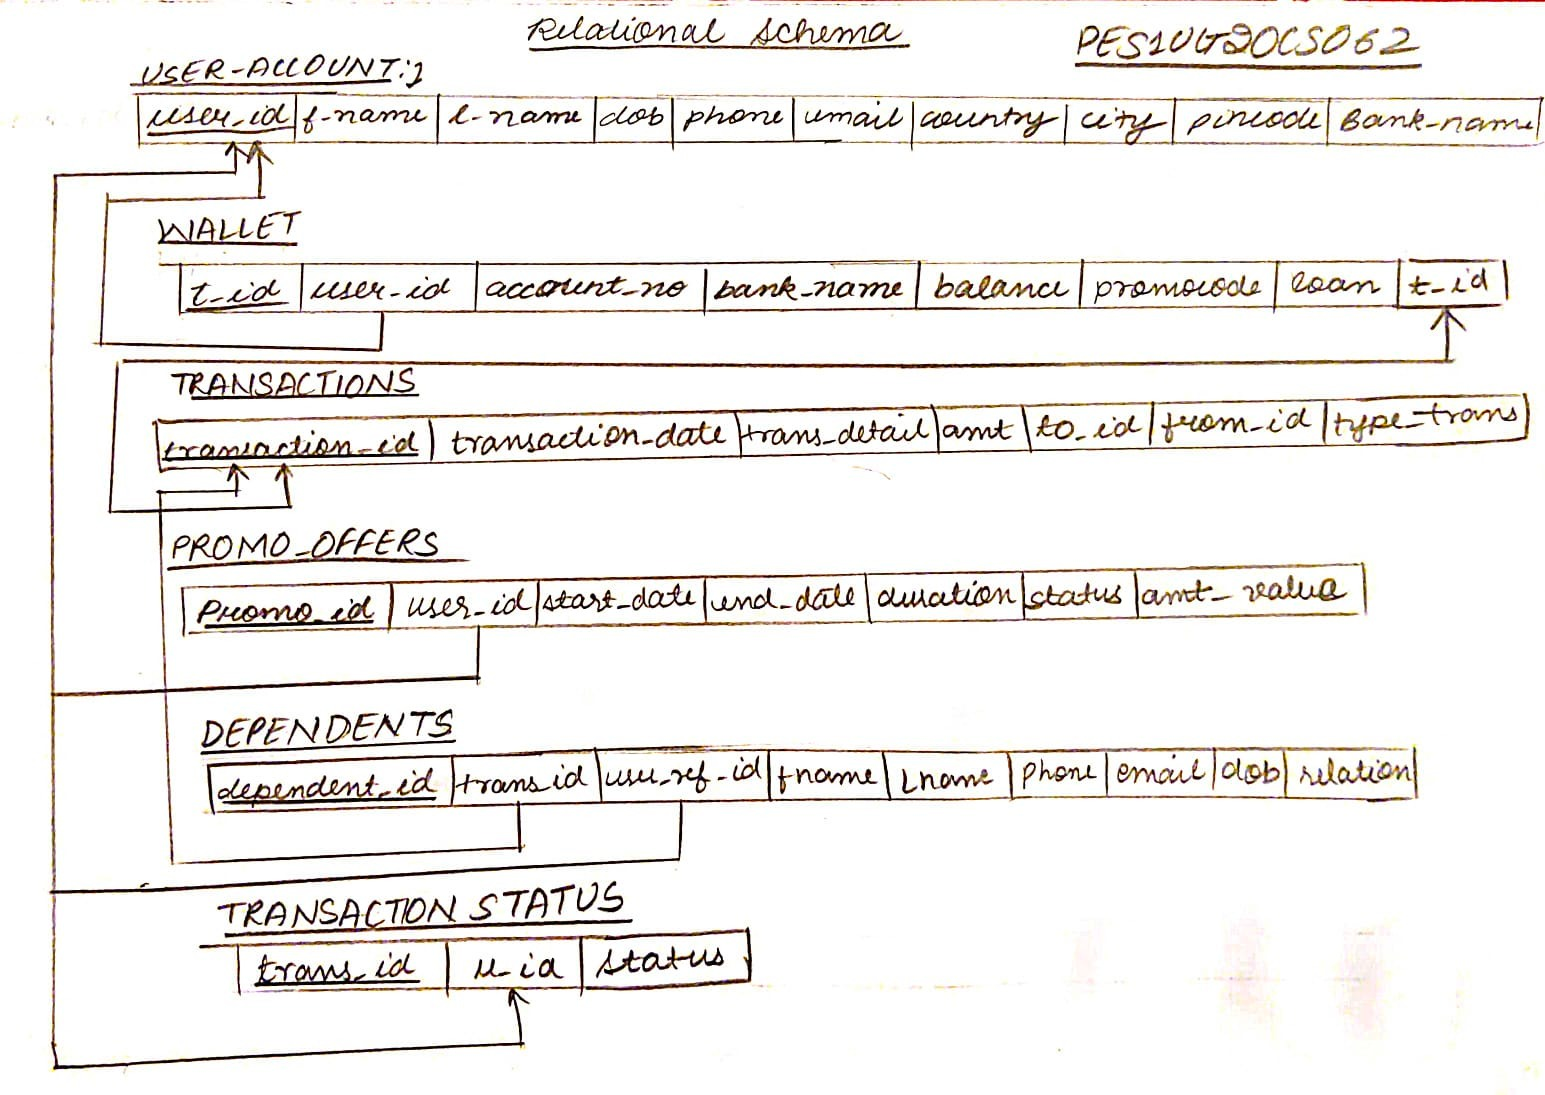 Relational Schema
PES1UG20CS062
USER-ACCOUNT:
user_id f-name l-name dob phone email country city pincode Bank-name
WALLET
t-id user-id account-no bank-name balance promocode loan t-id
TRANSACTIONS
transaction-id transaction-date trans-detail amt to-id from-id type-trans
PROMO_OFFERS
Promo_id user_id start-date end-date duration status amt-value
DEPENDENTS
dependent-id trans-id user-ref-id fname Lname phone email dob relation
TRANSACTION STATUS
trans-id u-id status